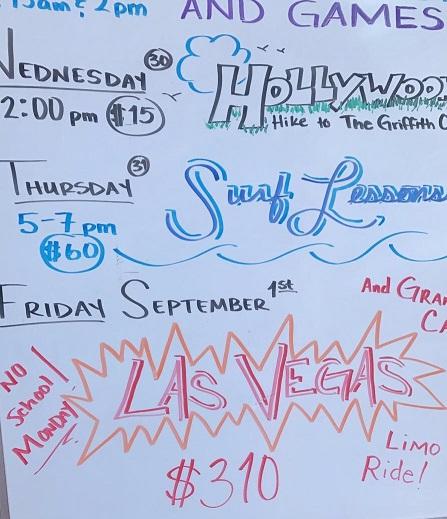 & 2pm AND GAMES
WEDNESDAY 30
2:00 pm $15
HOLLYWOO
Hike to The Griffith
THURSDAY 31
5-7pm
$60
Surf Lessons
FRIDAY SEPTEMBER 1st
And GRA
CA
NO School MONDAY!
LAS VEGAS
$310
LIMO
Ride!